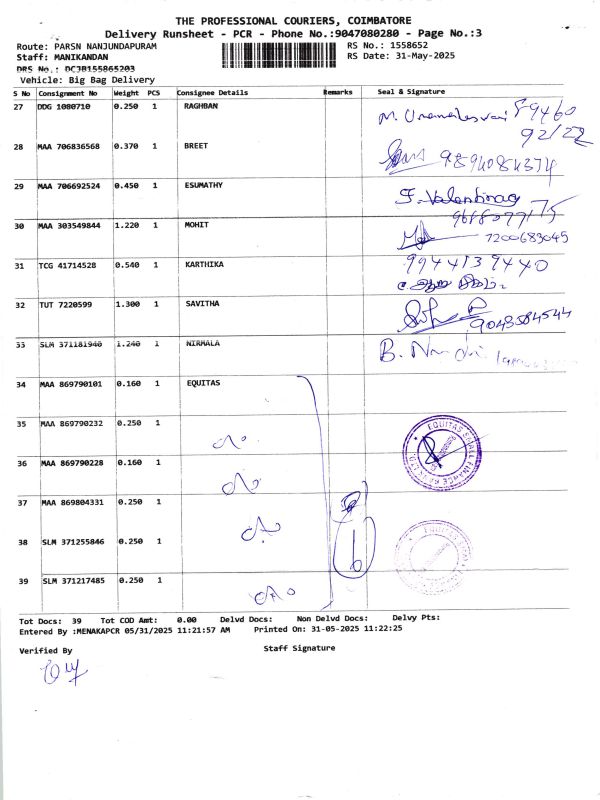 THE PROFESSIONAL COURIERS, COIMBATORE
Delivery Runsheet - PCR - Phone No.:9047080280 - Page No.:3
Route: PARSN NANJUNDAPURAM RS No.: 1558652
Staff: MANIKANDAN RS Date: 31-May-2025
DRS No.: DCJB155865203
Vehicle: Big Bag Delivery
S No Consignment No Weight PCS Consignee Details Remarks Seal & Signature
27 DDG 1080710 0.250 1 RAGHBAN
92/22
28 MAA 706836568 0.370 1 BREET
9894084374
29 MAA 706692524 0.450 1 ESUMATHY
30 MAA 303549844 1.220 1 MOHIT
7200683045
31 TCG 41714528 0.540 1 KARTHIKA
9944139440
32 TUT 7220599 1.300 1 SAVITHA
9043584544
33 SLM 371181940 1.240 1 NIRMALA
B.
34 MAA 869790101 0.160 1 EQUITAS
35 MAA 869790232 0.250 1
EQUITAS SMALL FINANCE
36 MAA 869790228 0.160 1
37 MAA 869804331 0.250 1
38 SLM 371255846 0.250 1
6
39 SLM 371217485 0.250 1
Tot Docs: 39 Tot COD Amt: 0.00 Delvd Docs: Non Delvd Docs: Delvy Pts:
Entered By :MENAKAPCR 05/31/2025 11:21:57 AM Printed On: 31-05-2025 11:22:25
Verified By Staff Signature